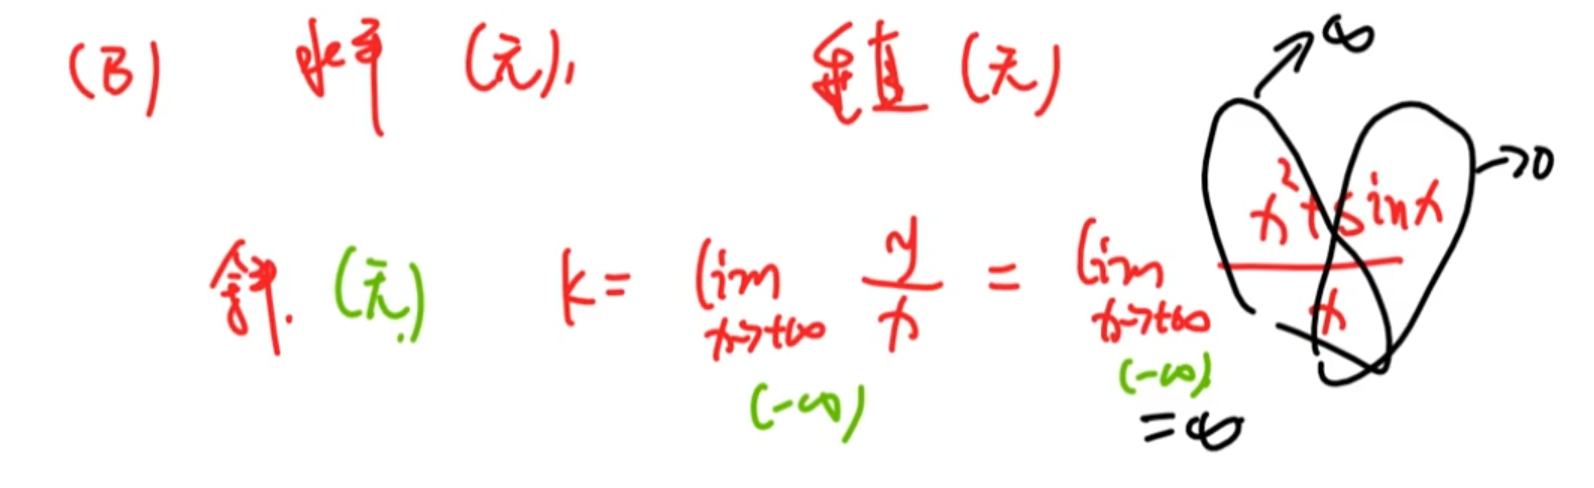 (B) 水平 (无), 垂直 (无) →∞
斜. (无) k = lim x→+∞ (-∞) y/x = lim x→+∞ (-∞) (x²+sinx)/x →0
=∞